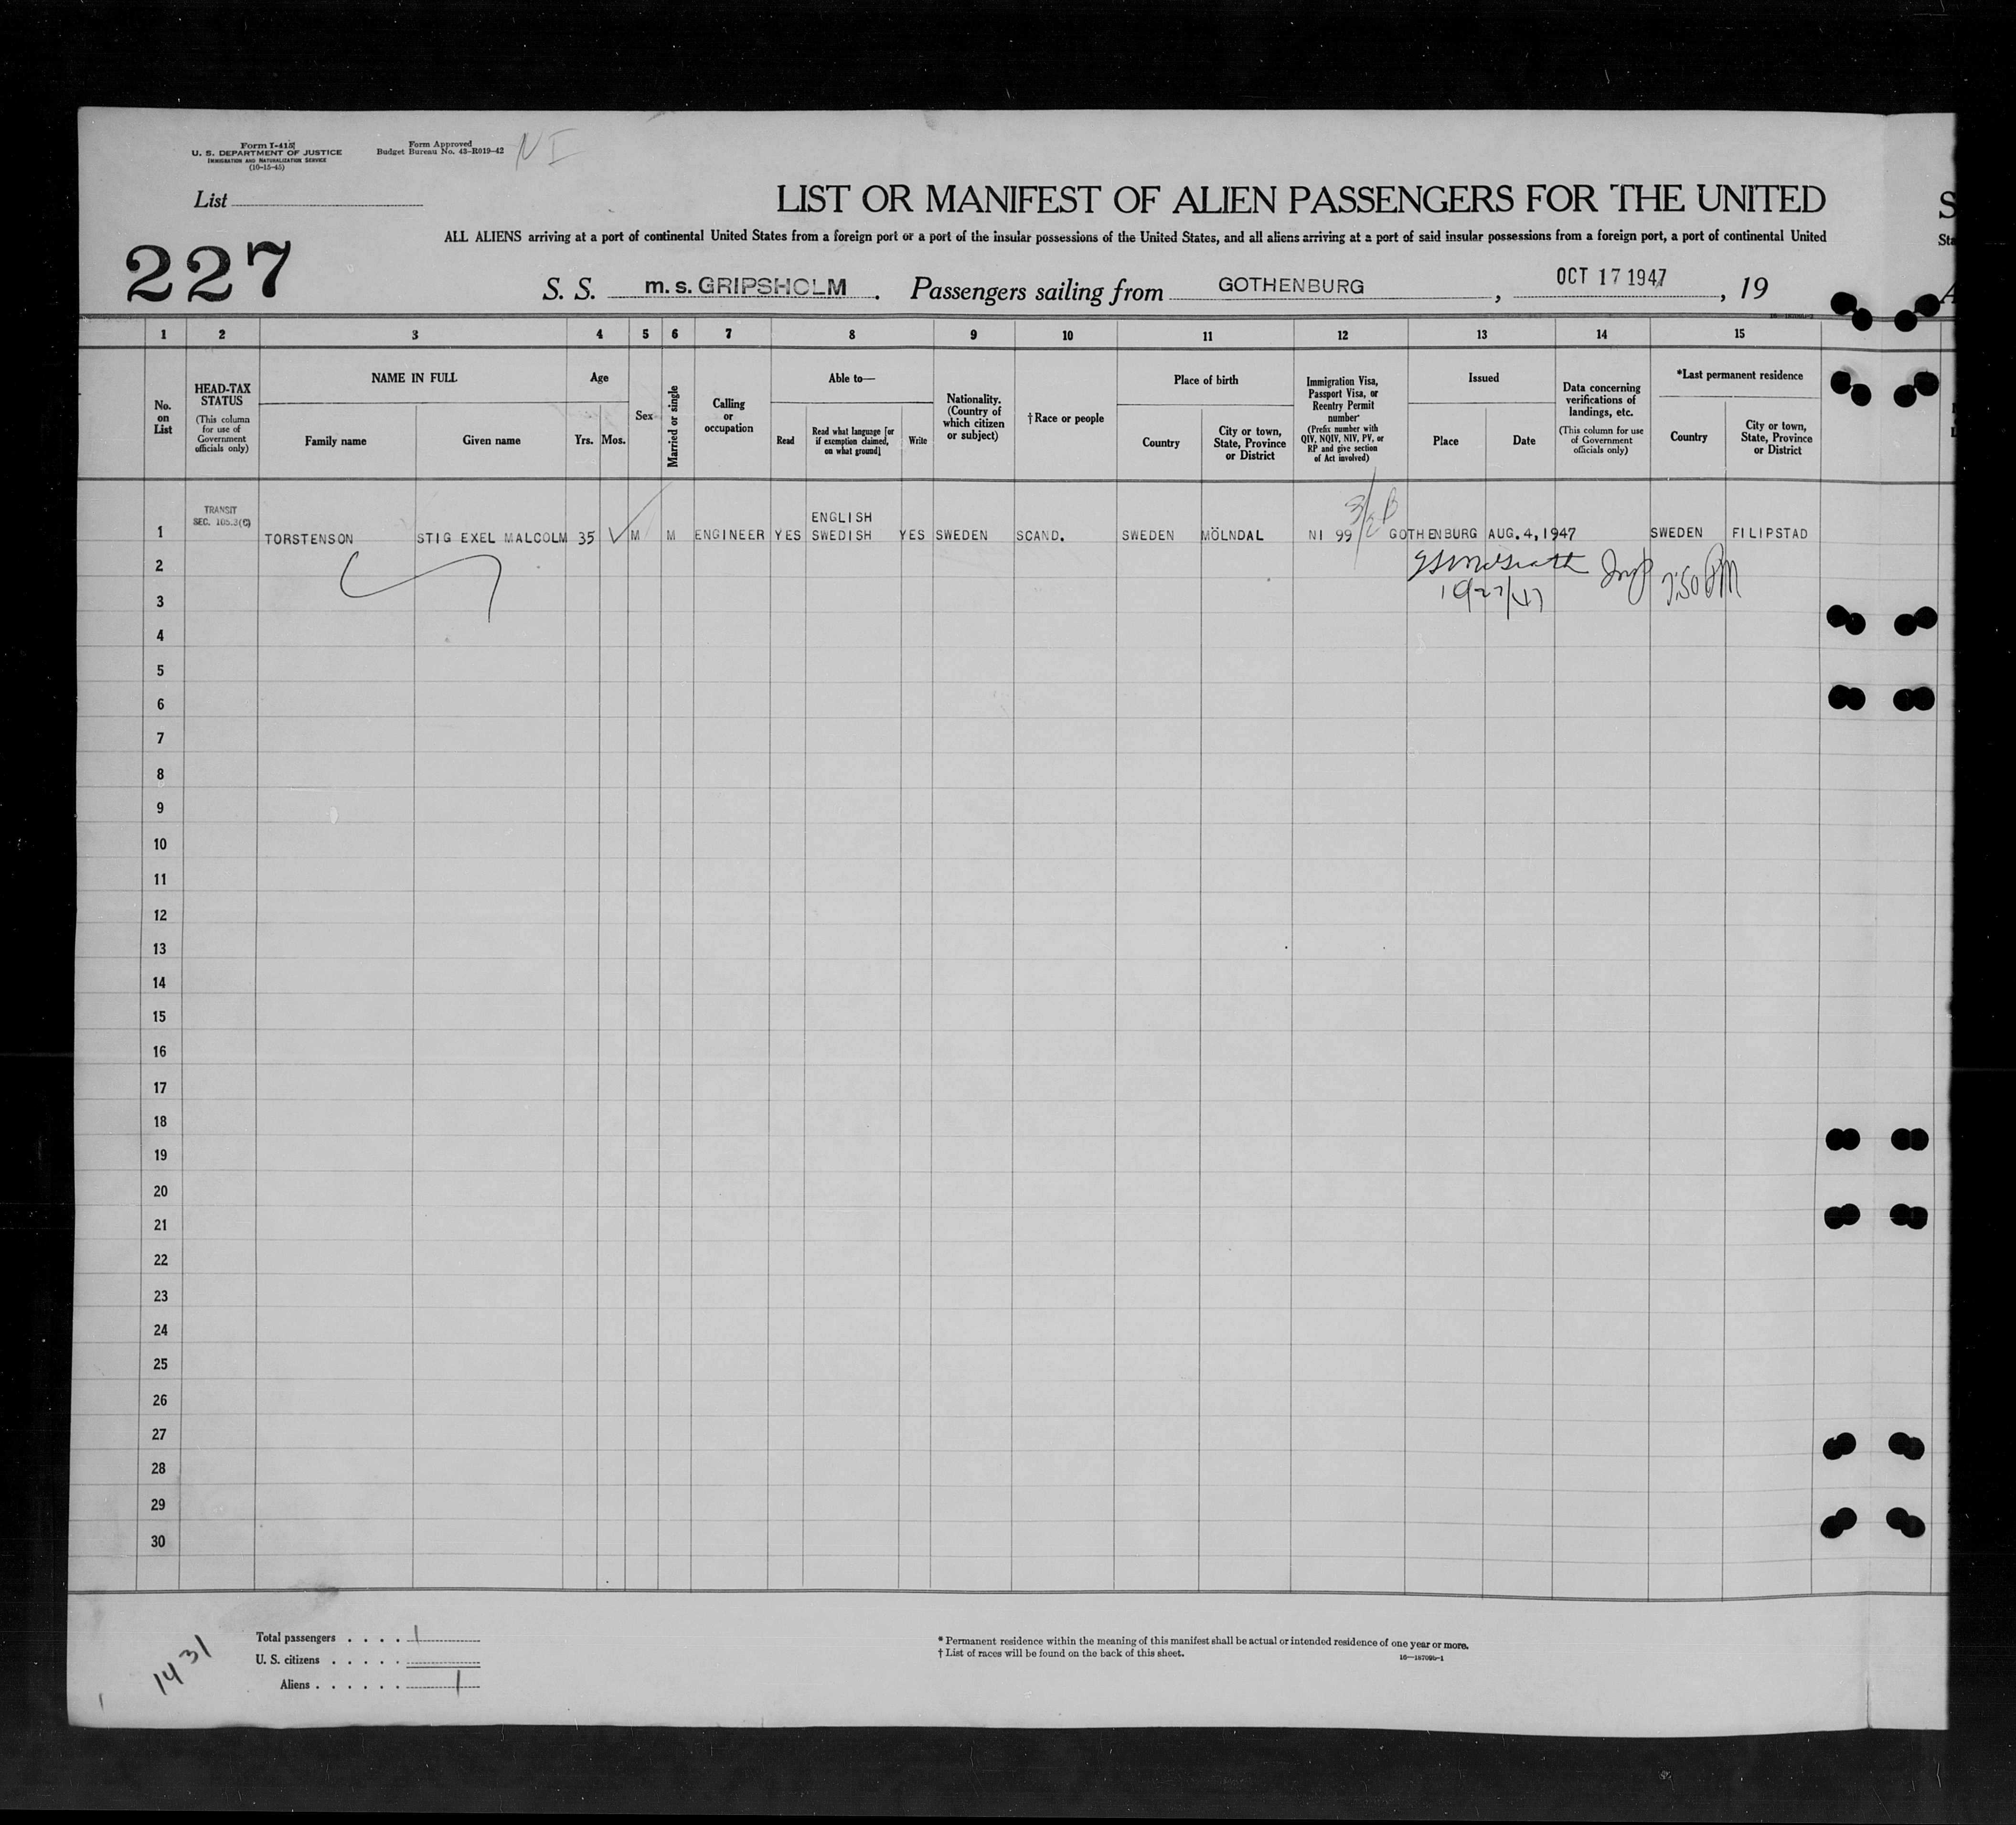 Form I-415
U. S. DEPARTMENT OF JUSTICE
IMMIGRATION AND NATURALIZATION SERVICE
(10-15-45)
Form Approved
Budget Bureau No. 43-R019-42
NI
List
LIST OR MANIFEST OF ALIEN PASSENGERS FOR THE UNITED
S
ALL ALIENS arriving at a port of continental United States from a foreign port or a port of the insular possessions of the United States, and all aliens arriving at a port of said insular possessions from a foreign port, a port of continental United
Sta
227
S. S. m. s. GRIPSHOLM. Passengers sailing from GOTHENBURG, OCT 17 1947, 19
1 2 3 4 5 6 7 8 9 10 11 12 13 14 15
No. on List
HEAD-TAX STATUS
(This column for use of Government officials only)
NAME IN FULL
Family name
Given name
Age
Yrs. Mos.
Sex
Married or single
Calling or occupation
Able to—
Read
Read what language [or if exemption claimed, on what ground]
Write
Nationality. (Country of which citizen or subject)
†Race or people
Place of birth
Country
City or town, State, Province or District
Immigration Visa, Passport Visa, or Reentry Permit number
(Prefix number with QIV, NQIV, NIV, PV, or RP and give section of Act involved)
Issued
Place
Date
Data concerning verifications of landings, etc.
(This column for use of Government officials only)
*Last permanent residence
Country
City or town, State, Province or District
TRANSIT
SEC. 105.3(C)
ENGLISH
1 TORSTENSON STIG EXEL MALCOLM 35 M M ENGINEER YES SWEDISH YES SWEDEN SCAND. SWEDEN MÖLNDAL NI 99 GOTHENBURG AUG. 4, 1947 SWEDEN FILIPSTAD
3/2 B
2
7:50 PM
10/27/47
3
4
5
6
7
8
9
10
11
12
13
14
15
16
17
18
19
20
21
22
23
24
25
26
27
28
29
30
1431
Total passengers . . . . 1
U. S. citizens . . . . .
Aliens . . . . . . 1
* Permanent residence within the meaning of this manifest shall be actual or intended residence of one year or more.
† List of races will be found on the back of this sheet.
16—18709b-1